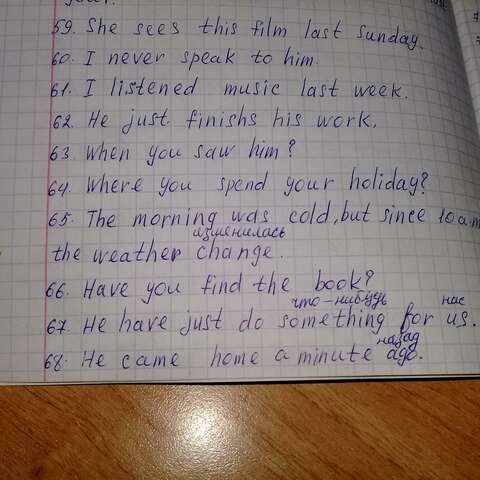 59. She sees this film last Sunday.
60. I never speak to him.
61. I listened music last week.
62. He just finishs his work.
63. When you saw him?
64. Where you spend your holiday?
65. The morning was cold, but since 10 am
изменилась
the weather change.
66. Have you find the book?
что-нибудь нас
67. He have just do something for us.
назад
68. He came home a minute ago.